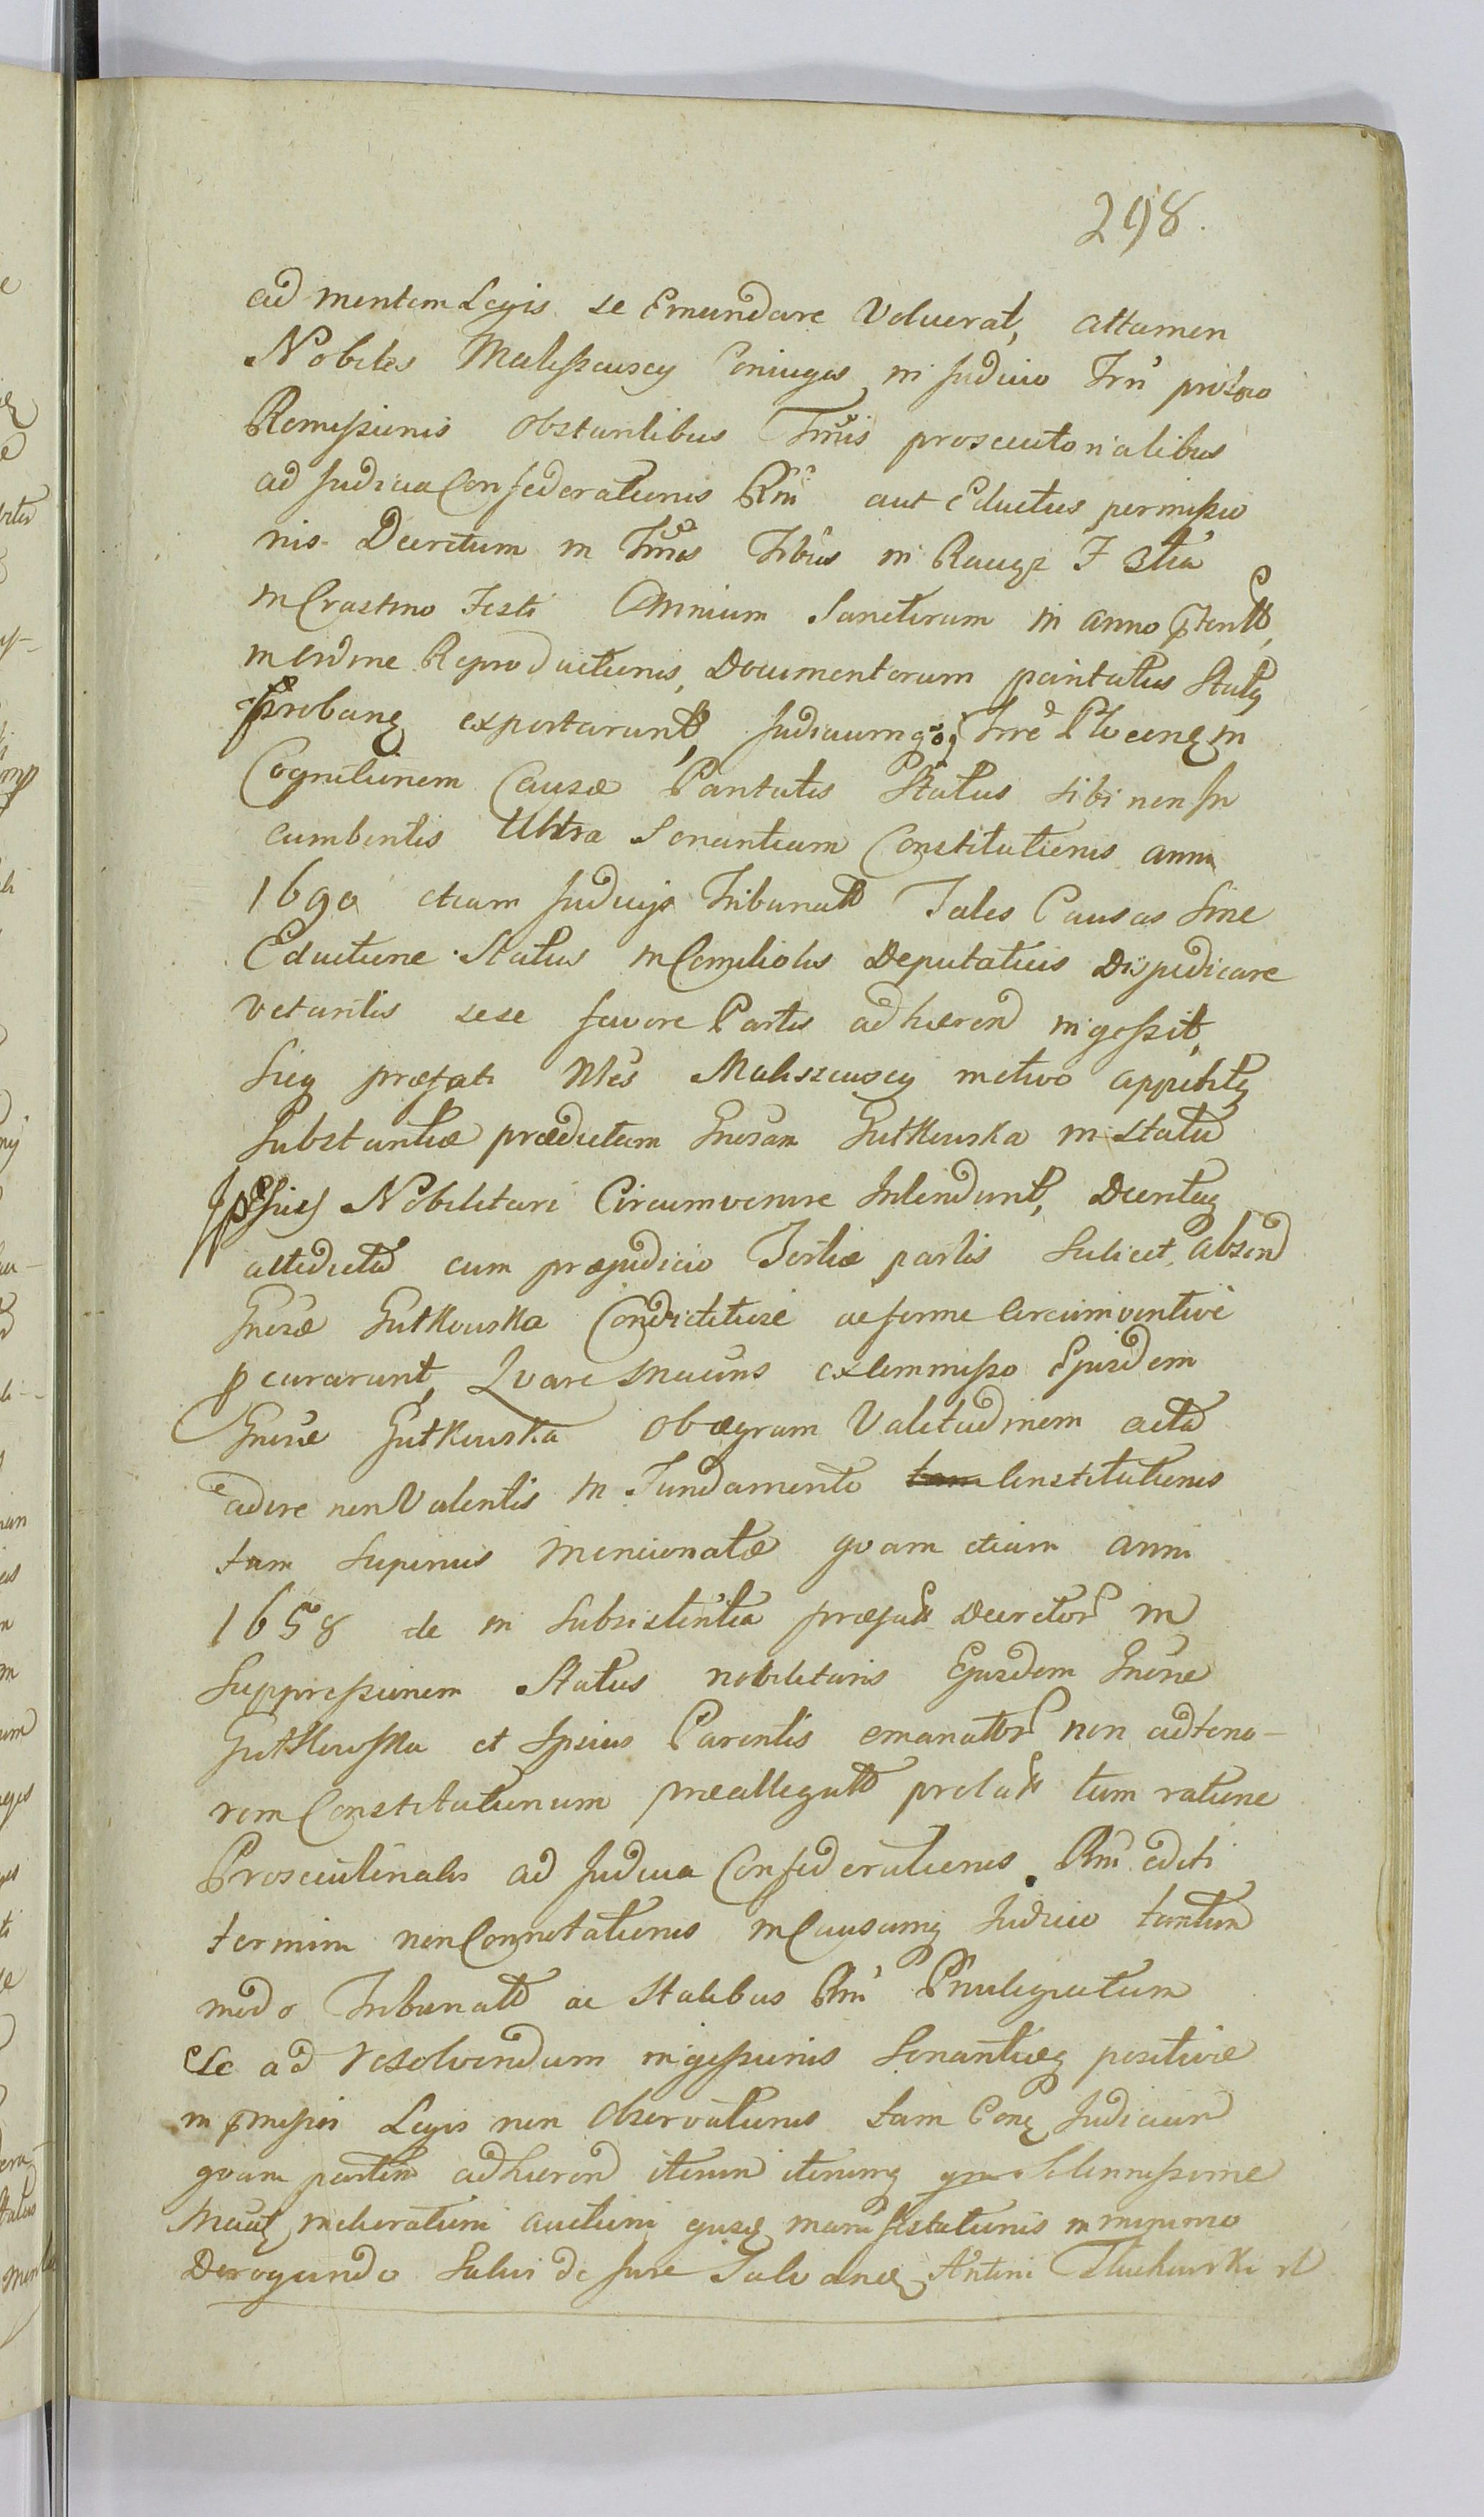 298.
ad mentem Legis se Emundare Voluerat, attamen
Nobiles Maliszewscy Coniuges in Judicio Trri
Remissionis obstantibus Tmis proscriptorialibus
ad Judicia Confederationis Rni aut Eductus permissio
nis Decretum in Tmos Tribus in Raugz F
in Crastino Festi Omnium Sanctorum in anno
in Ordine Reproductionis, Documentorum paritatus Status
probanq exportarunt, Judiciumqq Trre Plocenq in
Cognitionem Causæ Paritatis Status sibi non In
cumbentis Ultra Sonantiam Constitutionis anni
1690 etiam Judicijs Tribunalt Tales Causas Sine
Eductione Status in Comitiolis Deputaticis Disjudicare
vetantis sese favore Partis adhæren ingessit,
Sicq præfati Nles Maliszewscy motivo appetitq
Substantiæ prædictam Gnosam Gutkowska in statu
Ipsius Nobilitari Circumvenire Intendunt, Decretaq
attedicta cum præjudicio Tertiæ partis Scilicet Absen
Gnosæ Gutkowska Condictitiose ac forme Circumventive
pcurarunt, Quare Snauns ex commisso Ejusdem
Gnosæ Gutkowska ob ægram Valetudinem acta
adire non Valentis in Fundamento tam Constitutionis
tam Superius Mencionatæ qvam etiam anni
1658 de in Subsistentia præfatt Decretor in
Suppressionem Status nobilitaris Ejusdem Gnosæ
Gutkowska et Ipsius Parentis emanator non ad teno-
rem Constitutionum præallegatt prolatt tum ratione
Proscriptionalis ad Judicia Confederationis Rni editi
termini non Connotationis in Causamq Judicio tantum
modo Tribunalt ac Statibus Rni Privilegiatum
se ad resolvendum ingessionis Sonantiæq positivæ
in pmissis Legis non Observationis tam Conq Judicium
qvam partem adhæren iterum iterumq Solennissime
Snauit, meliorationi auctioni ejusq manifestationis in minimo
Derogando Salvis de Jure Salvanq Antoni